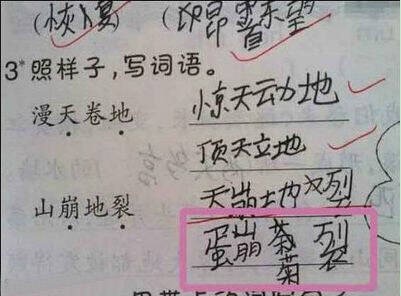 (恢复) 昂首东望
3*照样子,写词语。
漫天卷地 惊天动地
顶天立地
山崩地裂 天崩地裂
蛋崩菊裂